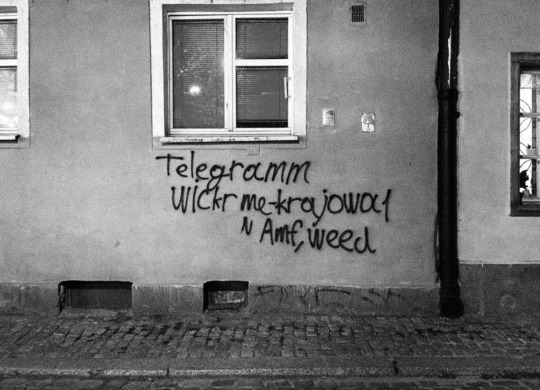 Telegramm
Wickr me-krajowa1
N Amf, weed